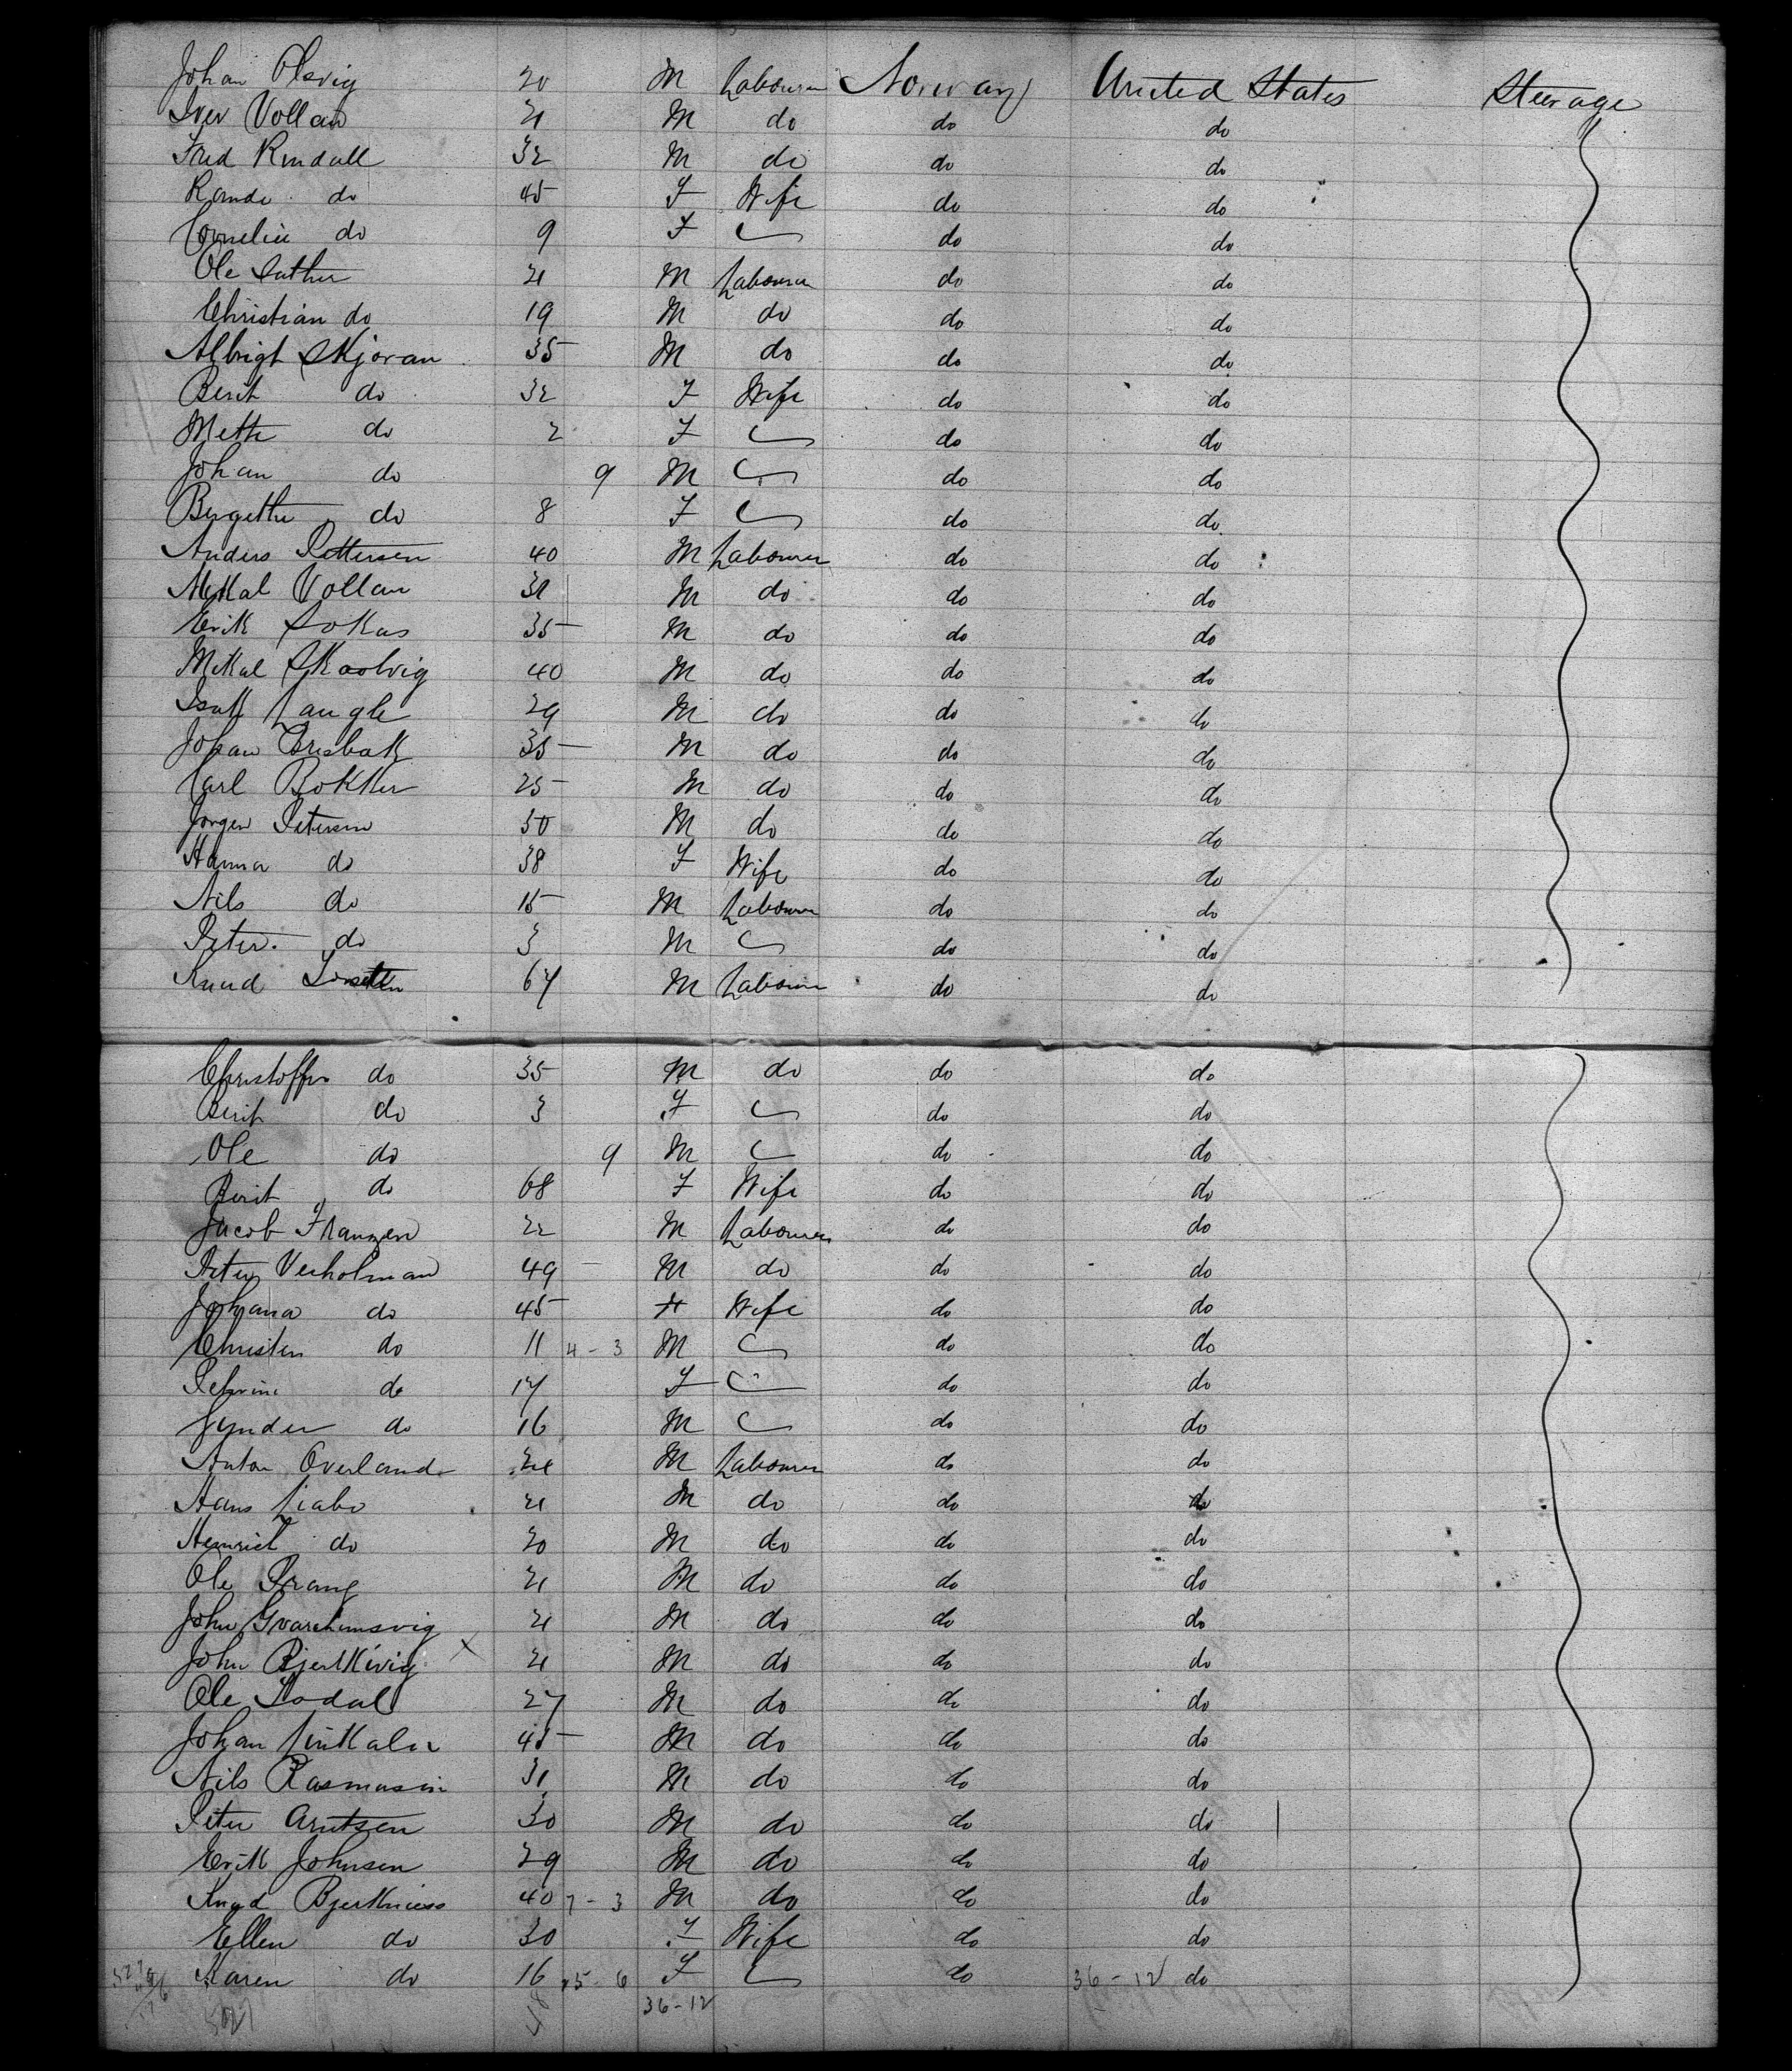 Johan Olsvig 20 M Labourer Norway United States Steerage
Iver Vollan 21 M do do do
Fred Rindall 32 M do do do
Rande do 45 F Wife do do
Cornelia do 9 F do do
Ole Sather 21 M Labourer do do
Christian do 19 M do do do
Albrigt Skjoran 35 M do do do
Berit do 32 F Wife do do
Mette do 2 F do do
Johan do 9 M do do
Bergethe do 8 F do do
Anders Pettersen 40 M Labourer do do
Mikal Vollan 31 M do do do
Erik Sokas 35 M do do do
Mikal Skaalvig 40 M do do do
Isak Laugle 29 M do do do
Johan Brisbak 35 M do do do
Carl Bokker 25 M do do do
Jorgen Petersen 30 M do do do
Hanna do 38 F Wife do do
Nils do 15 M Labourer do do
Peter do 3 M do do
Knud 64 M Labourer do do
Christoffer do 35 M do do do
Berit do 3 F do do
Ole do 9 M do do
Berit do 68 F Wife do do
Jacob Franzen 22 M Labourer do do
Peter Verholman 49 M do do do
Johana do 45 F Wife do do
Christen do 11 4-3 M do do
Petrine do 14 F do do
Gunder do 16 M do do
Anton Overland M Labourer do do
Hans Liabo 21 M do do do
Heinrich do 20 M do do do
Ole Prang 21 M do do do
John 21 M do do do
John Bjerkivig X 21 M do do do
Ole Todal 27 M do do do
Johan 45 M do do do
Nils Rasmusin 31 M do do do
Peter Arntsen 30 M do do do
Erik Johnsen 29 M do do do
Knud Bjerkniess 40 7-3 M do do do
Ellen do 30 F Wife do do
Karen do 16 5-6 F do 36-12 do
36-12